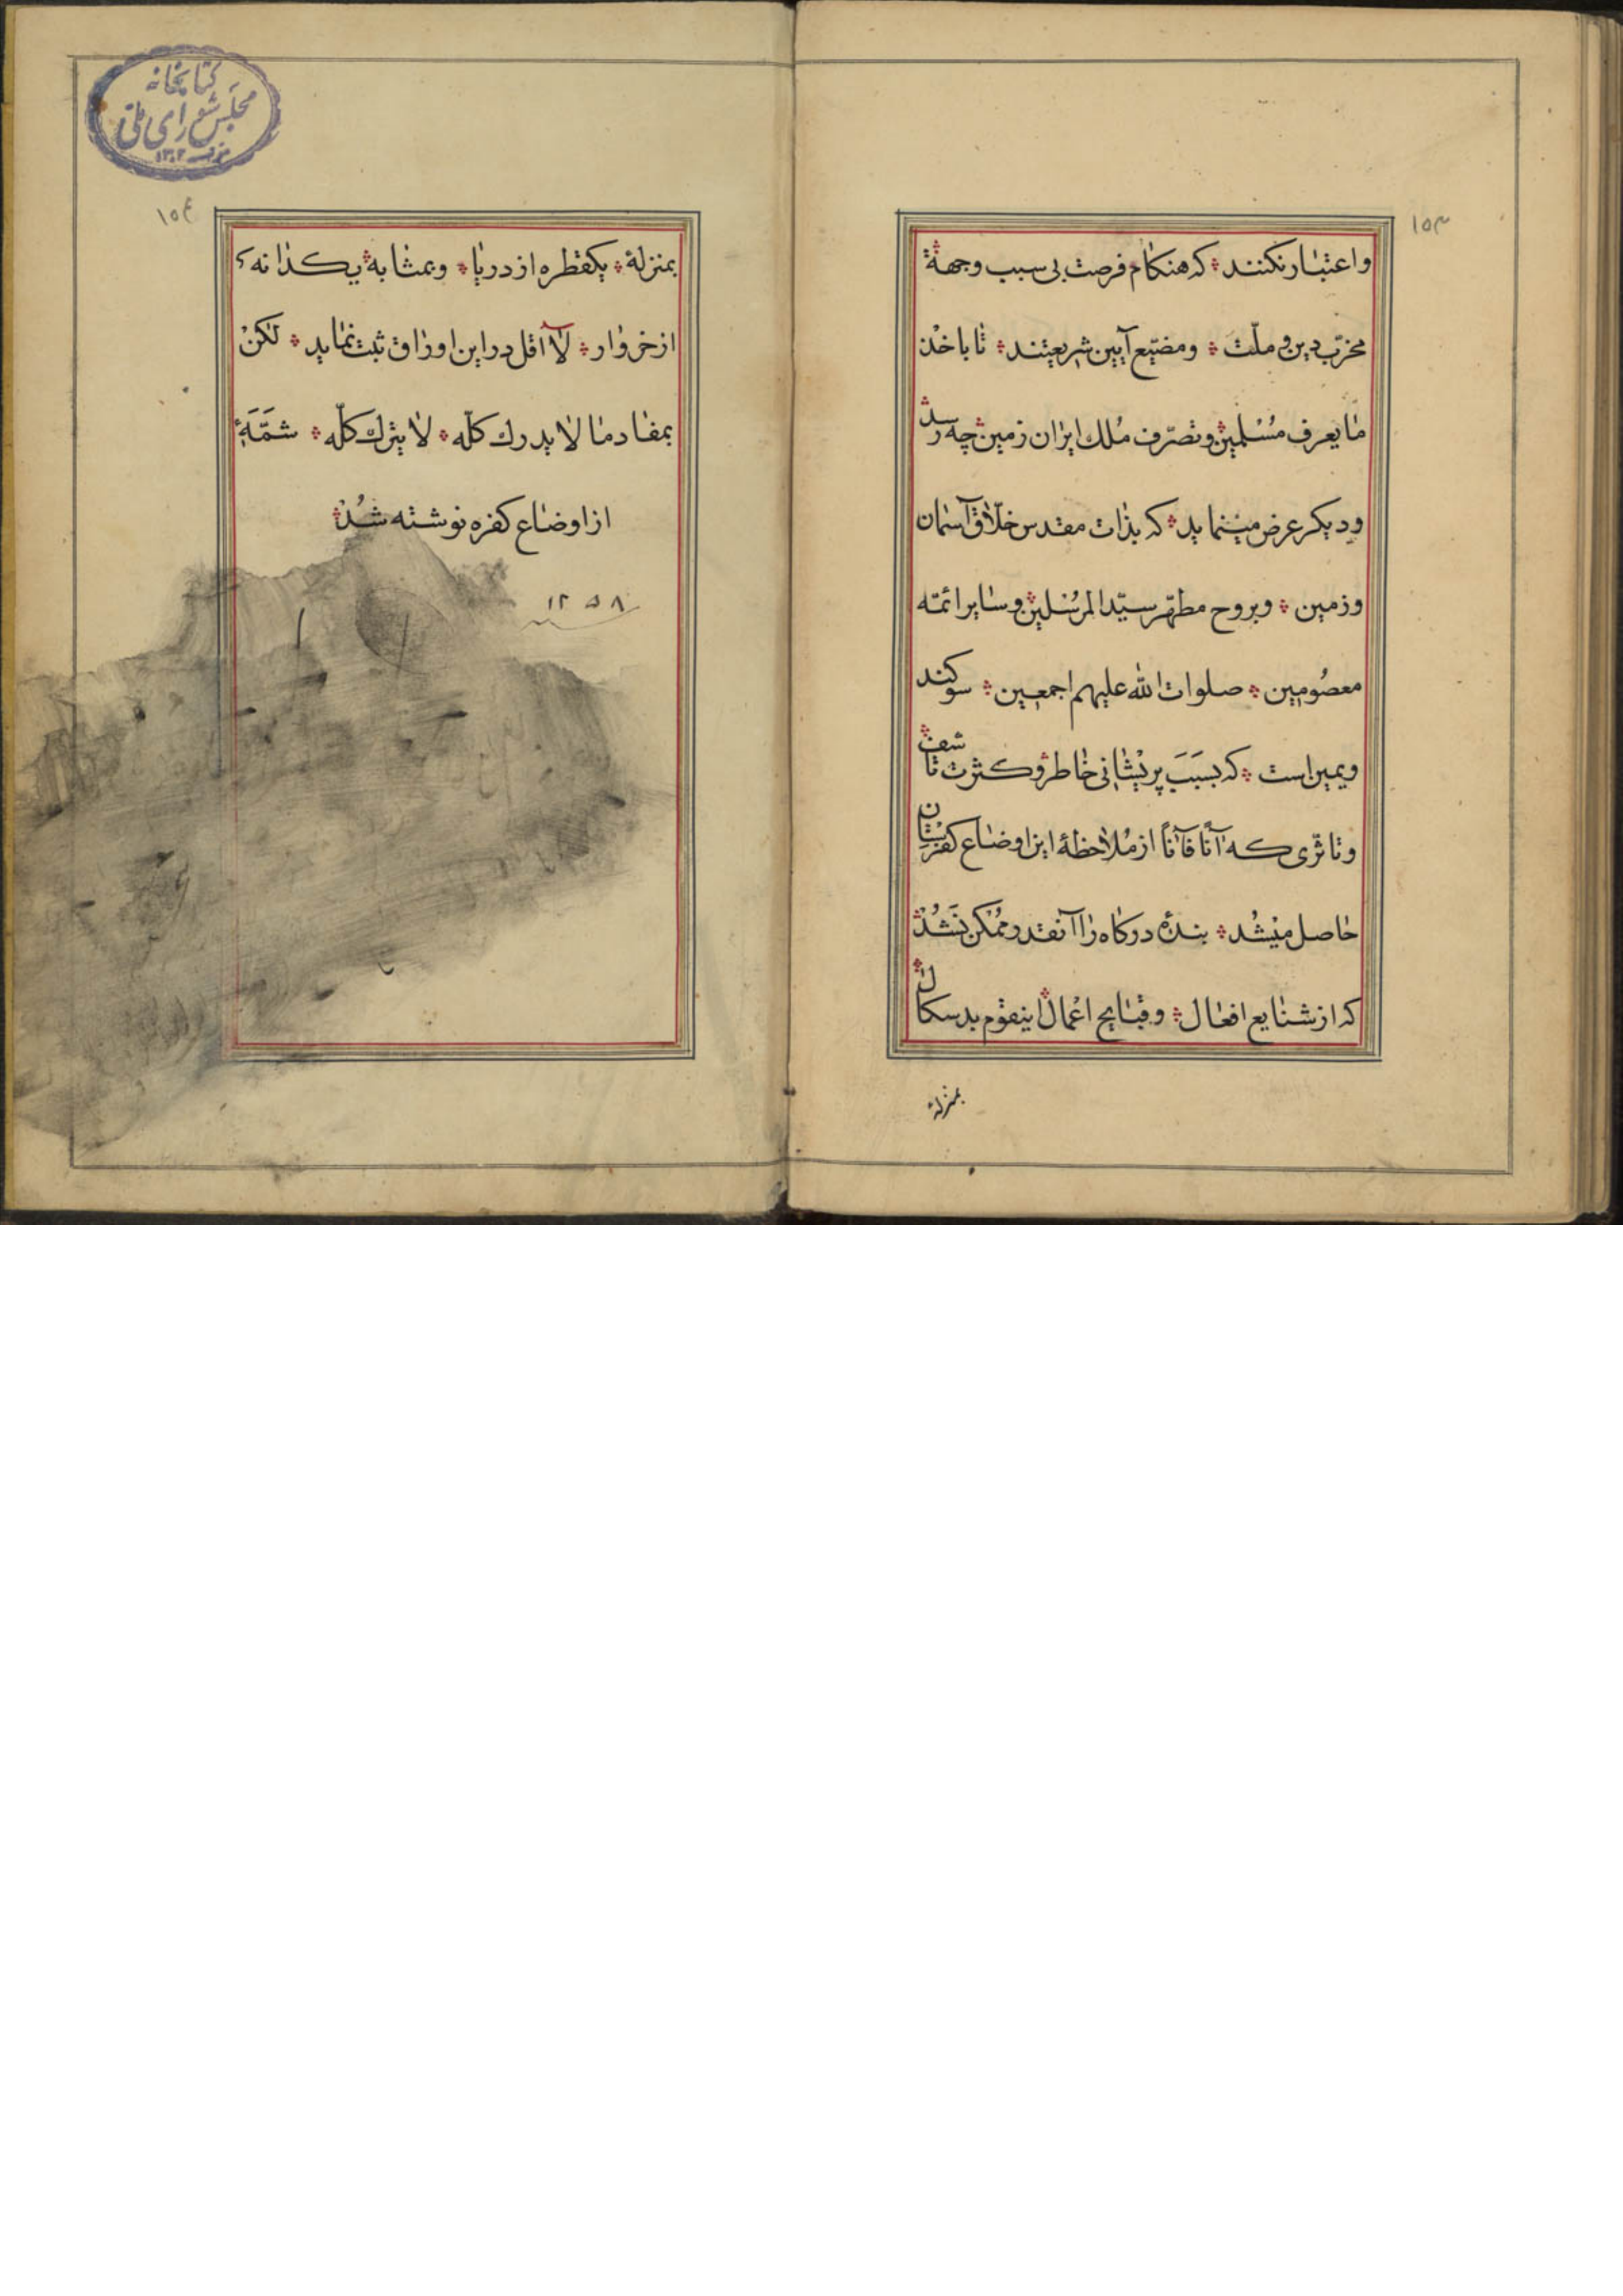 ۱۵۳
واعتبار نکنند که هنکام فرصت بی سبب وجهة
مخرّب دین و ملّت ومضیّع آیین شریعتند تا باخذ
ما یعرف مسلمین وتصرّف ملك ایران زمین چه رسد
ودیکر عرض مینماید که بذات مقدس خلّاق آسمان
وزمین وبروح مطهّر سیّد المرسلین وسایر ائمّه
معصومین صلوات الله علیهم اجمعین سوکند
ویمین است که بسبب پریشانی خاطر وکثرت تاسف
وتاثّری که آنًا فآنًا از ملاحظهٔ این اوضاع کفرستان
حاصل میشد بندهٔ درکاه را آنقدر ممکن نشد
که از شنایع افعال وقبایح اعمال اینقوم بدسکال
بمنزلهٔ
کتابخانه
مجلس شورای ملی
۱۳۰۲
۱۵۴
بمنزلهٔ یکقطره از دریا وبمثابه یکدانه
از خروار لا اقل در این اوراق ثبت نماید لکن
بمفاد ما لا یدرك کلّه لا یترك کلّه شمّهٔ
از اوضاع کفره نوشته شد
۱۲۵۸